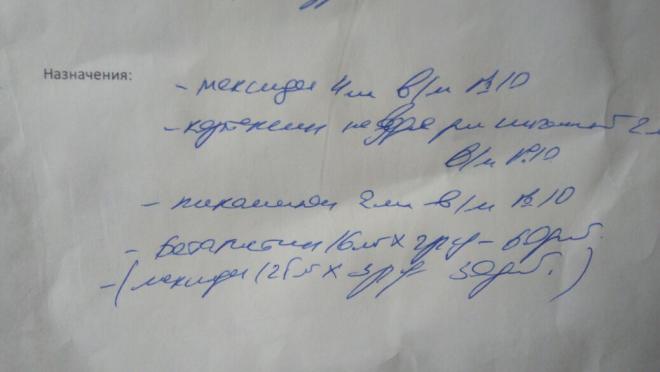 Назначения:
- мексидол 4 мл в/м № 10
- кортексин на 2 мл
в/м № 10
- пикамилон 2 мл в/м № 10
- бетагистин 16 мг х 2 р/д - 60 дн.
- (мексидол 125 мг х 3 р/д 30 дн.)